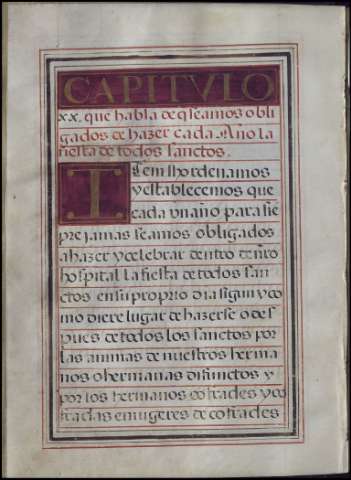 CAPITVLO
xx. que habla de q̃ seamos obli
gados de hazer cada. Año la
fiesta de todos sanctos.
ITem shordenamos
y establecemos que
cada un año para siẽ
pre jamas seamos obligados
a hazer y celebrar dentro de nr̃o
hospital la fiesta de todos san
ctos en su proprio dia sigun y co
mo diere lugar de hazerse o des
pues de todos los sanctos por
las animas de nuestros herma
nos o hermanas difunctos y
por los hermanos cofrades y co
fradas e mugeres de cofrades